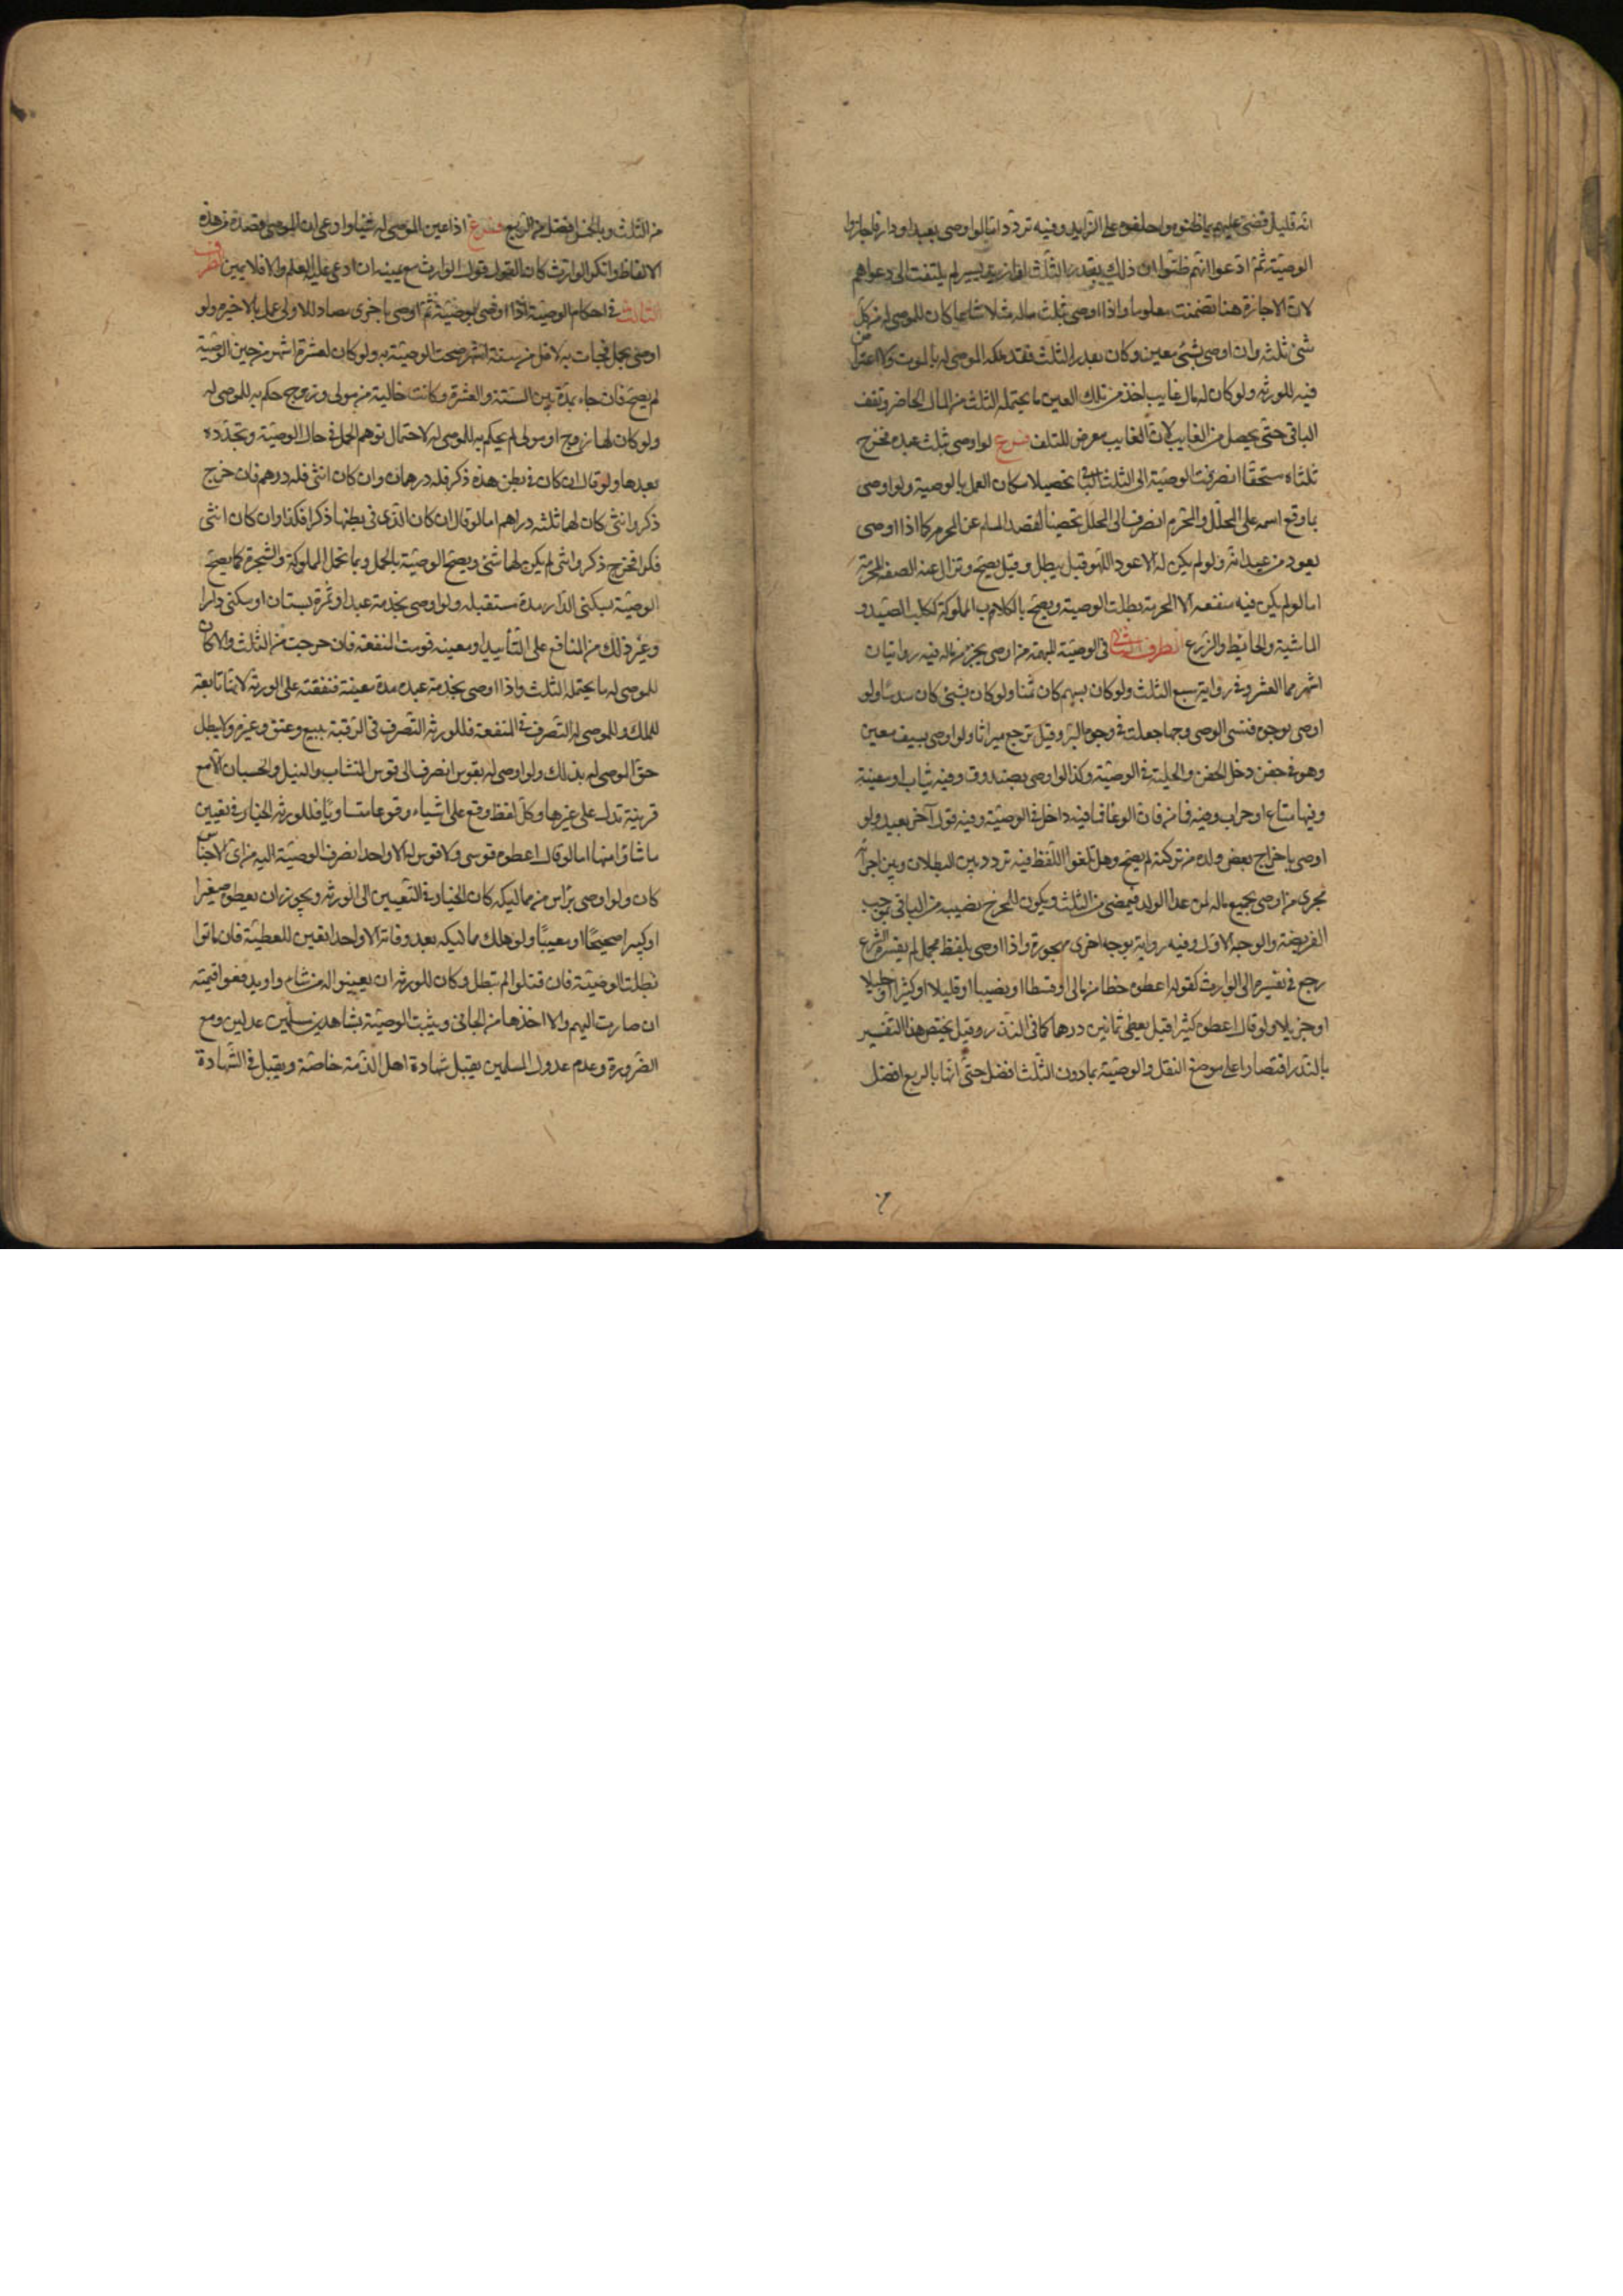 انه قليل قضى عليهم بما ظنوه واحلفوا على الزايد وفيه تردد اما لو اوصى بعبد او دار فاجازوا
الوصية ثم ادعوا انهم ظنوا ان ذلك بقدر الثلث او ازيد بيسير لم يلتفت الى دعواهم
لان الاجازة هنا تضمنت معلوما واذا اوصى بثلث ماله مثلا مشاعا كان للموصى له من كل
شئ ثلثه وان اوصى بشئ معين وكان بقدر الثلث فقد ملكه الموصى له بالموت ولا اعتراض
فيه للورثه ولو كان له مال غايب اخذ من تلك العين ما يحتمله الثلث من المال الحاضر ويقف
الباقى حتى يحصل من الغايب لان الغايب معرض للتلف فرع لو اوصى بثلث عبده فخرج
ثلثاه مستحقا انصرفت الوصية الى الثلث الباقى تحصيلا لامكان العمل بالوصية ولو اوصى
بما وقع اسمه على المحلل والمحرم انصرف الى المحلل تحصينا لقصد المسلم عن المحرم كما اذا اوصى
بعود من عيدانه ولو لم يكن له الا عود اللهو قيل يبطل وقيل يصح وتزال عنه الصفه المحرمة
اما لو لم يكن فيه منفعه الا المحرمة بطلت الوصية ويصح بالكلاب المملوكة ككلب الصيد و
الماشية والحايط والزرع الطرف الثانى فى الوصية المبهمة من اوصى بجزء من ماله فيه روايتان
اشهرهما العشر وفى رواية سبع الثلث ولو كان بسهم كان ثمنا ولو كان بشئ كان سدسا ولو
اوصى بوجوه فنسى الوصى وجها جعلت فى وجوه البر وقيل ترجع ميراثا ولو اوصى بسيف معين
وهو فى جفن دخل الجفن والحلية فى الوصية وكذا لو اوصى بصندوق وفيه ثياب او سفينة
وفيها متاع او جراب وفيه قماش فان الوعا وما فيه داخل فى الوصية وفيه قول آخر بعيد ولو
اوصى باخراج بعض ولده من تركته لم يصح وهل تلغوا اللفظ فيه تردد بين البطلان وبين اجرائه
مجرى من اوصى بجميع ماله لمن عدا الولد فيمضى من الثلث ويكون للمخرج نصيبه من الباقى بموجب
الفريضة والوجه الاول وفيه رواية بوجه اخرى مهجورة واذا اوصى بلفظ مجمل لم يفسره الشرع
رجع فى تفسيره الى الوارث كقوله اعطوه حظا من مالى او قسطا او نصيبا او قليلا او كثيرا او جليلا
او جزيلا ولو قال اعطوه كثيرا قيل يعطى ثمانين درهما كما فى النذر وقيل يختص هذا التفسير
بالنذر اقتصارا على موضع النقل والوصية بما دون الثلث افضل حتى انها بالربع افضل
من الثلث وبالخمس افضل من الربع فرع اذا عين الموصى له شيئا وادعى ان الموصى قصده من هذه
الالفاظ وانكر الوارث كان القول قول الوارث مع يمينه ان ادعى عليه العلم والا فلا يمين الطرف
الثالث فى احكام الوصية اذا اوصى بوصية ثم اوصى باخرى مضادة للاولى عمل بالاخيرة ولو
اوصى بحمل فجاءت به لاقل من ستة اشهر صحت الوصية به ولو كان لعشرة اشهر من حين الوصية
لم يصح فان جاء بمدة بين الستة والعشرة وكانت خالية من مولى وزوج حكم به للموصى له
ولو كان لها زوج او مولى لم يحكم به للموصى له لاحتمال توهم الحمل فى حال الوصية وتجدده
بعدها ولو قال ان كان فى بطن هذه ذكر فله درهمان وان كان انثى فله درهم فان خرج
ذكر وانثى كان لهما ثلثه دراهم اما لو قال ان كان الذى فى بطنها ذكرا فكذا وان كان انثى
فكذا فخرج ذكر وانثى لم يكن لهما شئ ويصح الوصية بالحمل وبما تحمل المملوكة والشجرة كما يصح
الوصية بسكنى الدار مدة مستقبله ولو اوصى بخدمة عبد او ثمرة بستان او سكنى دار
وغير ذلك من المنافع على التأبيد او معينه قومت المنفعة فان خرجت من الثلث والا كان
للموصى له ما يحتمله الثلث واذا اوصى بخدمة عبده مدة معينة فنفقته على الورثة لانها تابعة
للملك وللموصى له التصرف فى المنفعة وللورثه التصرف فى الرقبة ببيع وعتق وغيره ولا يبطل
حق الموصى له بذلك ولو اوصى له بقوس انصرف الى قوس النشاب والنبل والحسبان الا مع
قرينة تدل على غيرها وكل لفظ وقع على اشياء وقوعا متساويا فللورثه الخيار فى تعيين
ما شاؤا منها اما لو قال اعطوه قوسى ولا قوس له الا واحد انصرف الوصية اليه من اى الاجناس
كان ولو اوصى برأس من مماليكه كان الخيار فى التعيين الى الورثه ويجوز ان يعطوه صغيرا
او كبيرا صحيحا او معيبا ولو هلك مماليكه بعد وفاته الا واحدا تعين للعطية فان ماتوا
بطلت الوصية فان قتلوا لم تبطل وكان للورثه ان يعينوا له من شاءوا ويدفعوا قيمته
ان صارت اليهم والا اخذها من الجانى ويثبت الوصية بشاهدين مسلمين عدلين ومع
الضرورة وعدم عدول المسلمين يقبل شهادة اهل الذمة خاصة ويقبل فى الشهادة